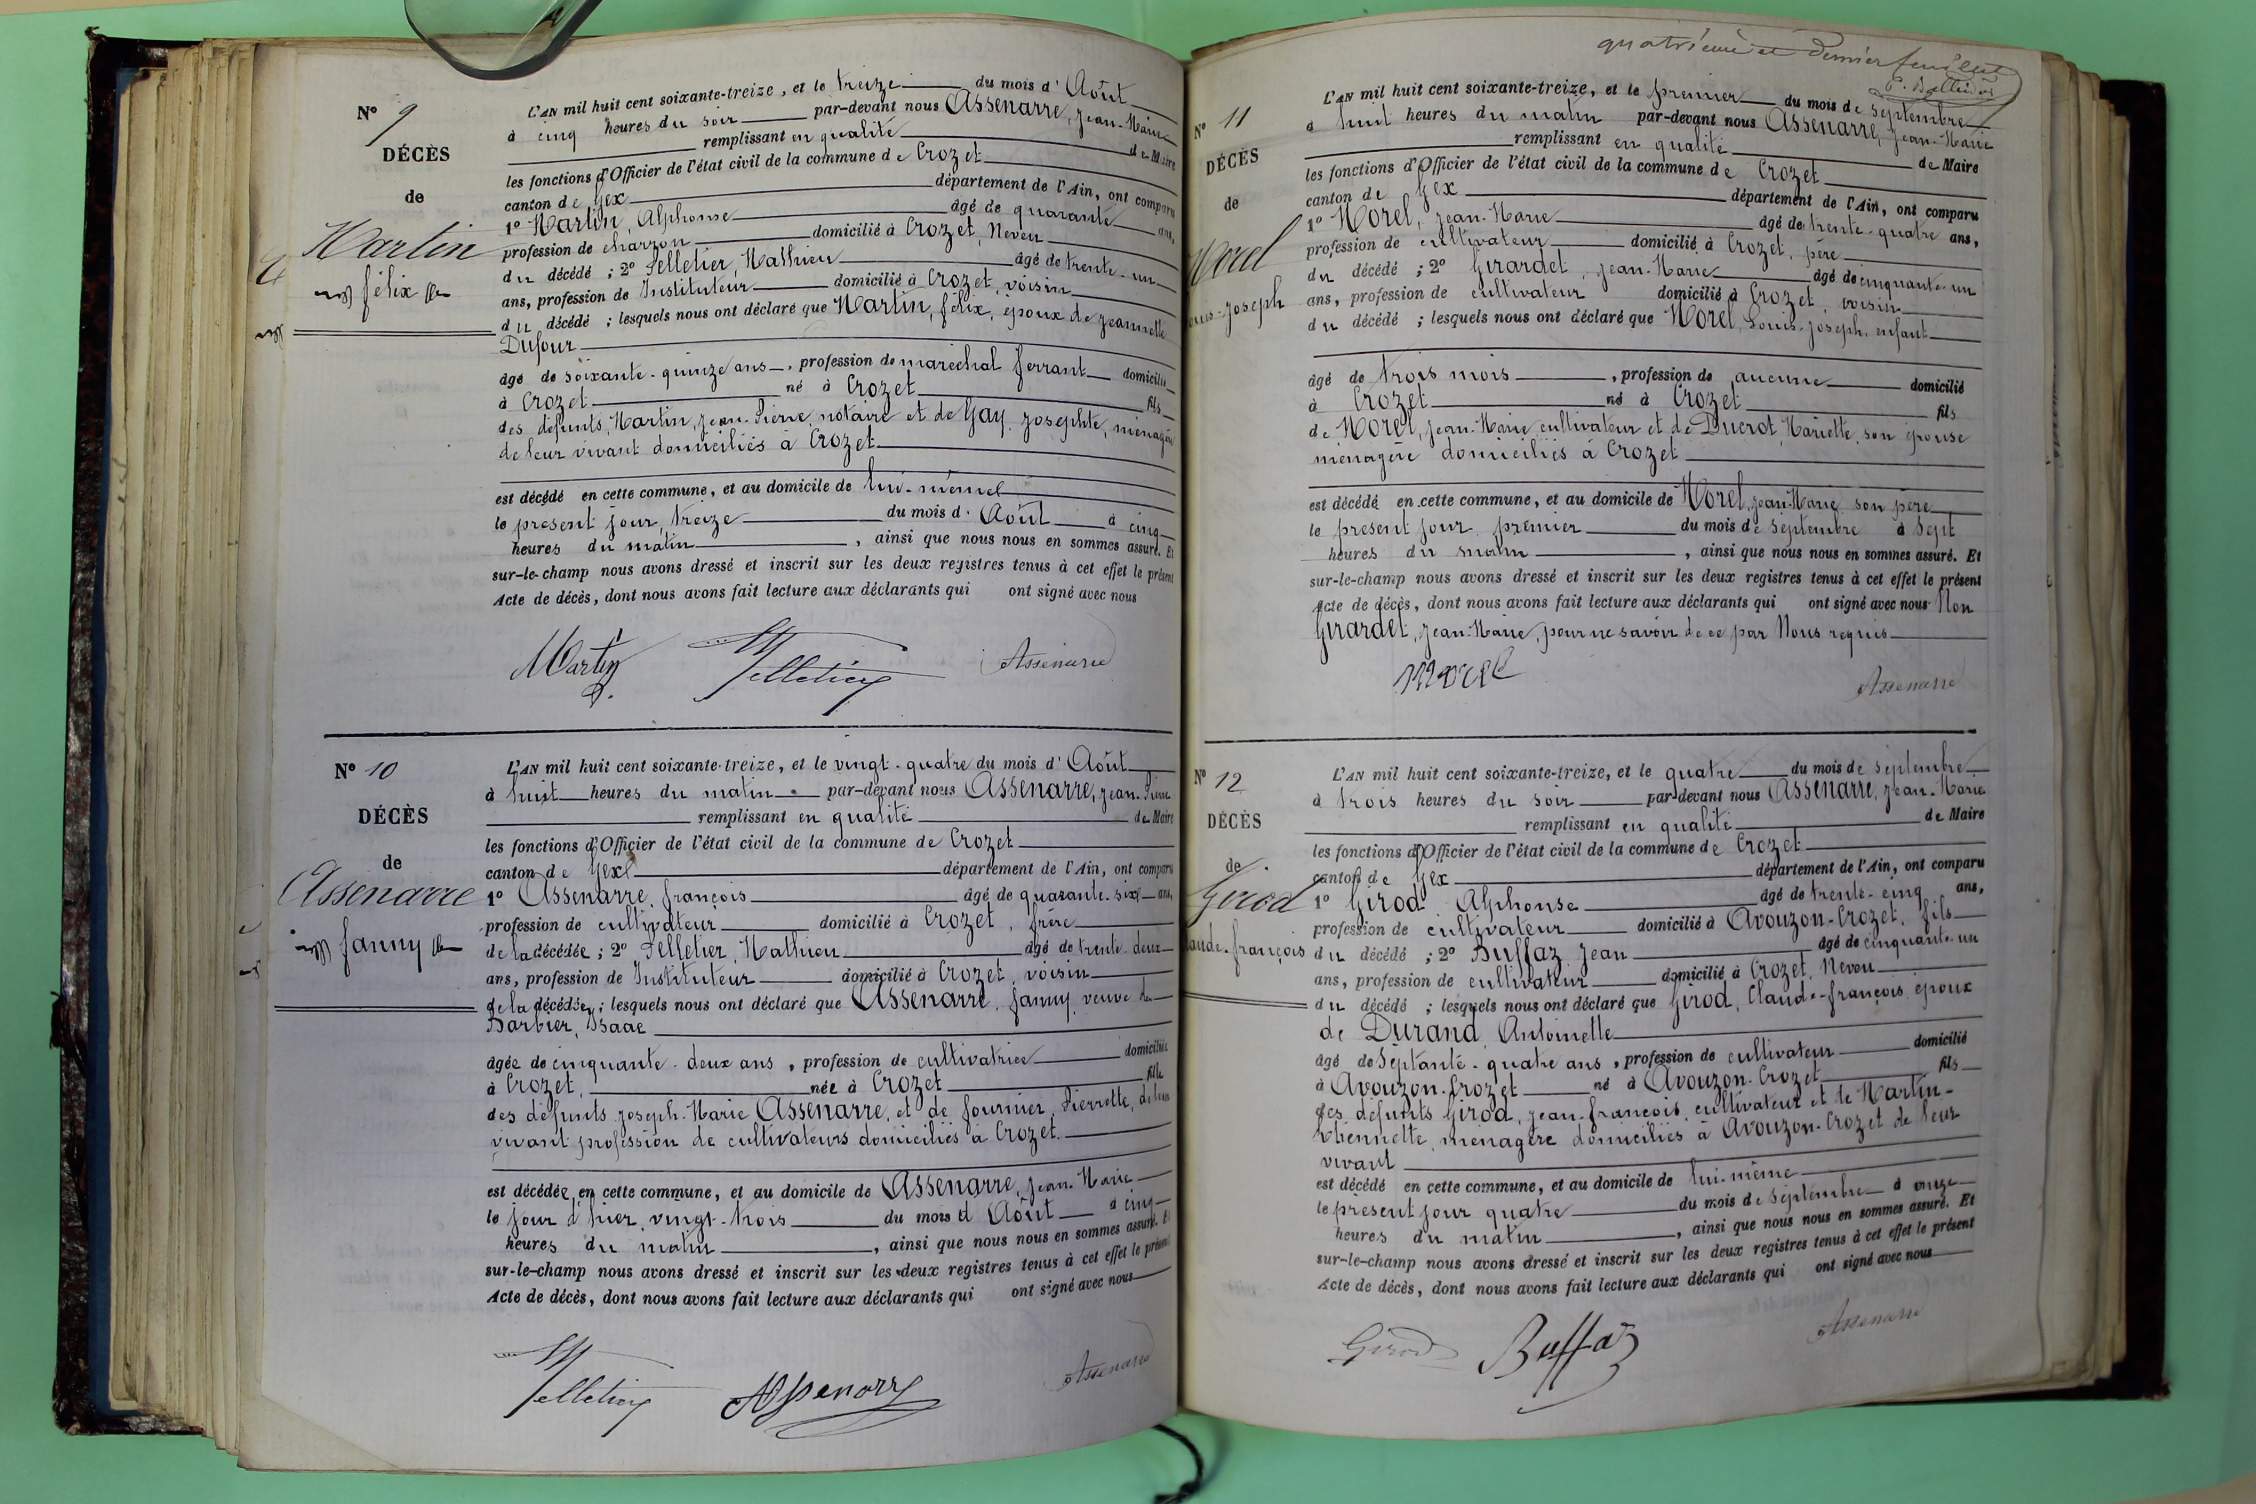 N° 9
DÉCÈS
de
Martin
félix
L'AN mil huit cent soixante-treize, et le treize du mois d' Août
à cinq heures du soir par-devant nous Assenarre, Jean-Marie
remplissant en qualité de Maire
les fonctions d'Officier de l'état civil de la commune de Crozet
canton de Gex département de l'Ain, ont comparu
1° Martin, Alphonse âgé de quarante ans,
profession de charron domicilié à Crozet, Neveu
du décédé ; 2° Pelletier, Mathieu âgé de trente-un
ans, profession de Instituteur domicilié à Crozet, voisin
du décédé ; lesquels nous ont déclaré que Martin, félix, époux de Jeannette
Dufour
âgé de soixante-quinze ans, profession de maréchal ferrant domicilié
à Crozet né à Crozet fils
des défunts, Martin, Jean-Pierre, notaire et de Gay, Josephte, ménagère
de leur vivant domiciliés à Crozet
est décédé en cette commune, et au domicile de lui-même
le présent jour, treize du mois d' Août à cinq
heures du matin, ainsi que nous nous en sommes assuré. Et
sur-le-champ nous avons dressé et inscrit sur les deux registres tenus à cet effet le présent
Acte de décès, dont nous avons fait lecture aux déclarants qui ont signé avec nous
Martin Pelletier Assenarre
N° 10
DÉCÈS
de
Assenarre
fanny
L'AN mil huit cent soixante-treize, et le vingt-quatre du mois d' Août
à huit heures du matin par-devant nous Assenarre, Jean-Pierre
remplissant en qualité de Maire
les fonctions d'Officier de l'état civil de la commune de Crozet
canton de Gex département de l'Ain, ont comparu
1° Assenarre, françois âgé de quarante-six ans,
profession de cultivateur domicilié à Crozet, frère
de la décédée ; 2° Pelletier, Mathieu âgé de trente-deux
ans, profession de Instituteur domicilié à Crozet, voisin
de la décédée ; lesquels nous ont déclaré que Assenarre, fanny, veuve de
Barbier, Isaac
âgée de cinquante-deux ans, profession de cultivatrice domiciliée
à Crozet, née à Crozet fille
des défunts Joseph-Marie Assenarre, et de fournier, Pierrette, de leur
vivant profession de cultivateurs domiciliés à Crozet.
est décédée en cette commune, et au domicile de Assenarre, Jean-Marie
le jour d'hier, vingt-trois du mois d' Août à cinq
heures du matin, ainsi que nous nous en sommes assuré. Et
sur-le-champ nous avons dressé et inscrit sur les deux registres tenus à cet effet le présent
Acte de décès, dont nous avons fait lecture aux déclarants qui ont signé avec nous
Pelletier Assenarre Assenarre
quatrième et dernier feuillet
N° 11
DÉCÈS
de
Morel
Louis-Joseph
L'AN mil huit cent soixante-treize, et le premier du mois de Septembre
à huit heures du matin par-devant nous Assenarre, Jean-Marie
remplissant en qualité de Maire
les fonctions d'Officier de l'état civil de la commune de Crozet
canton de Gex département de l'Ain, ont comparu
1° Morel, Jean-Marie âgé de trente-quatre ans,
profession de cultivateur domicilié à Crozet, père
du décédé ; 2° Girardet, Jean-Marie âgé de cinquante-un
ans, profession de cultivateur domicilié à Crozet, voisin
du décédé ; lesquels nous ont déclaré que Morel, Louis-Joseph, enfant
âgé de trois mois, profession de aucune domicilié
à Crozet né à Crozet fils
de Morel, Jean-Marie, cultivateur et de Ducrot, Mariette, son épouse
ménagère domiciliés à Crozet
est décédé en cette commune, et au domicile de Morel, Jean-Marie son père
le présent jour premier du mois de Septembre à sept
heures du matin, ainsi que nous nous en sommes assuré. Et
sur-le-champ nous avons dressé et inscrit sur les deux registres tenus à cet effet le présent
Acte de décès, dont nous avons fait lecture aux déclarants qui ont signé avec nous Non
Girardet, Jean-Marie, pour ne savoir de ce par Nous requis
Morel Assenarre
N° 12
DÉCÈS
de
Girod
Claude-françois
L'AN mil huit cent soixante-treize, et le quatre du mois de Septembre
à trois heures du soir par-devant nous Assenarre, Jean-Marie
remplissant en qualité de Maire
les fonctions d'Officier de l'état civil de la commune de Crozet
canton de Gex département de l'Ain, ont comparu
1° Girod, Alphonse âgé de trente-cinq ans,
profession de cultivateur domicilié à Avouzon-Crozet, fils
du décédé ; 2° Buffaz, Jean âgé de cinquante-un
ans, profession de cultivateur domicilié à Crozet, Neveu
du décédé ; lesquels nous ont déclaré que Girod, Claude-françois époux
de Durand, Antoinette
âgé de Septante-quatre ans, profession de cultivateur domicilié
à Avouzon-Crozet né à Avouzon-Crozet fils
des défunts Girod, Jean-francois, cultivateur et de Martin-
Etiennette, ménagère domiciliés à Avouzon-Crozet de leur
vivant
est décédé en cette commune, et au domicile de lui-même
le présent jour quatre du mois de Septembre à onze
heures du matin, ainsi que nous nous en sommes assuré. Et
sur-le-champ nous avons dressé et inscrit sur les deux registres tenus à cet effet le présent
Acte de décès, dont nous avons fait lecture aux déclarants qui ont signé avec nous
Girod Buffaz Assenarre